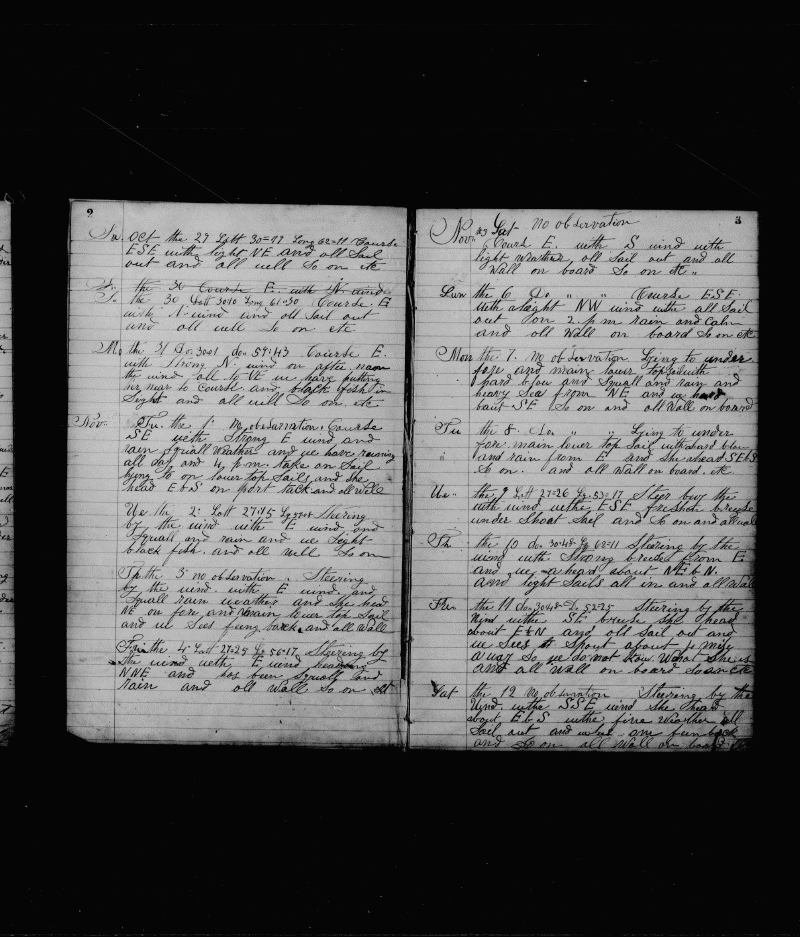 2
Sa. Oct the 29 Latt 30=19 Long 62=11 Course
ESE with light NE and all Sail
out and all well So on etc
Su. the 30 Course E. with N. wind
So the 30 Latt 3010 Long 61=30 Course. E
with N. wind and all Sail out
and all well So on etc
Mo the 31 Do. 3001 do. 59:43 Course E.
with Strong N. wind on after noon
the wind all to NE we have putting
her near to Course and black fish in
Sight and all well So on. etc
Nov. Tu. the 1 no observation Course
SE with Strong E wind and
rain Squall Weather and we have
all day and 4 p.m. take on Sail
lying to on lower top Sails and She
head E b S on port tack and all well
We the 2: Latt 27:45 Steering
by the wind with E wind and
Squall and rain and we Sight
black fish. and all well So on
Th the 3 no observation. Steering
by the wind. with E wind and
Squall rain weather and She head
NE on fore and main lower top Sail
and we Sees back and all Wall
Fri the 4 Latt 27=25 Lg 56=17 Steering by
the wind with E wind heading
NNE and has been Squall and
rain and all Wall So on etc
3
Nov. Sat no observation
Course E. with S wind with
light Weather, all Sail out and all
Wall on board So on etc "
Sun the 6 Do. " " Course ESE
with a light NW wind with all Sail
out 2 p.m rain and Calm
and all Wall on board So on etc
Mon the 7. no observation Lying to under
fore and main lower topSail with
hard blow and Squall and rain and
heavy Sea from NE and we
SE So on and all Wall on board
Tu the 8. Do. " " Lying to under
fore. main lower top Sail with hard blow
and rain from E and She ahead SE b S
So on. and all Wall on board. etc
We. the 9 Latt 27=26 Lg. 53=17 Steer buy the
with wind withe ESE freshe breese
under Short Sail and So on and all wall
Th. the 10 do. 30:48 Lg 62=11 Steering by the
wind with Strong breese from E
and we a head about NE b N.
and light Sails all in and all Wall
Fri. the 11 do 30:48 Lo. 52=25 Steering by the
Wind withe SE breese She head
about E½N and all Sail out and
we Sees a Spout about 4 miles
away So we do not know What She is
and all Wall on board So on etc
Sat the 12 no observation Steering by the
Wind withe SSE wind She head
about E b S withe fine Weather all
Sail out and we See one
and So on all Wall on board